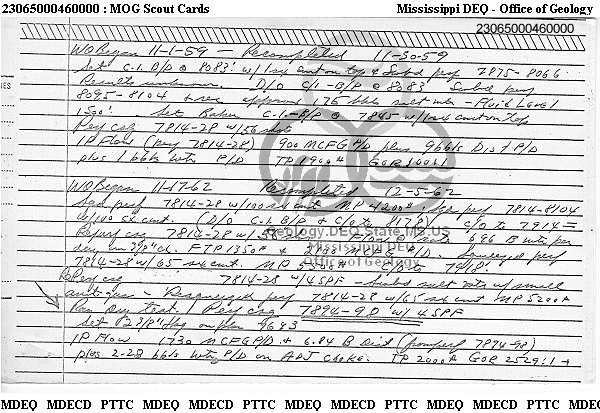 23065000460000 : MOG Scout Cards Mississippi DEQ - Office of Geology
23065000460000
WO Began 11-1-59 - Recompleted 11-30-59
Set C.I. B/P @ 8083' w/1 sx cmt on top & Subd perf 7875-8066
Results unknown. D/O C/I-B/P @ 8083' Subd perf
8095-8104 & rec approx 176 bbls salt wtr - Fluid Level
1500'. Set Baker C.I.-B/P @ 7845 w/1 sx cmt on top
Perf csg 7814-28 w/56 shots
IP Flow (perf 7814-28) 900 MCFG P/D plus 9 bbls Dist P/D
plus 1 bbls wtr P/D TP 1900# GOR 100:1
WO Began 11-17-62 Recompleted 12-5-62
Sqd perf 7814-28 w/100 sx cmt MP 4200#. Sqd perf 7814-8104
w/100 sx cmt. (D/O C.I. B/P & C/O to 8170') C/O to 7914
Reperf csg 7814-28 w/58 rate 696 B wtr per
day on 3/8" ch. FTP 1350# P/D. Squeezed perf
7814-28 w/65 sx cmt. MP 5500# C/O to 7918'.
RePerf csg 7814-28 w/4SPF - Subd salt wtr w/small
amt gas - Resqueezed perf 7814-28 w/65 sx cmt MP 5200#
Ran Dry test. Perf csg 7894-98 w/4SPF
Set 2 3/8" tbg on pkr
IP Flow 1730 MCFG P/D & 6.84 B Dist (from perf 7894-98)
plus 2.28 bbls wtr P/D on ADJ Choke. TP 2000# GOR 2529:1 +
Geology.DEQ.State.MS.US
Mississippi DEQ
Office of Geology
MDEQ MDECD PTTC MDEQ MDECD PTTC MDEQ MDECD PTTC MDEQ MDECD